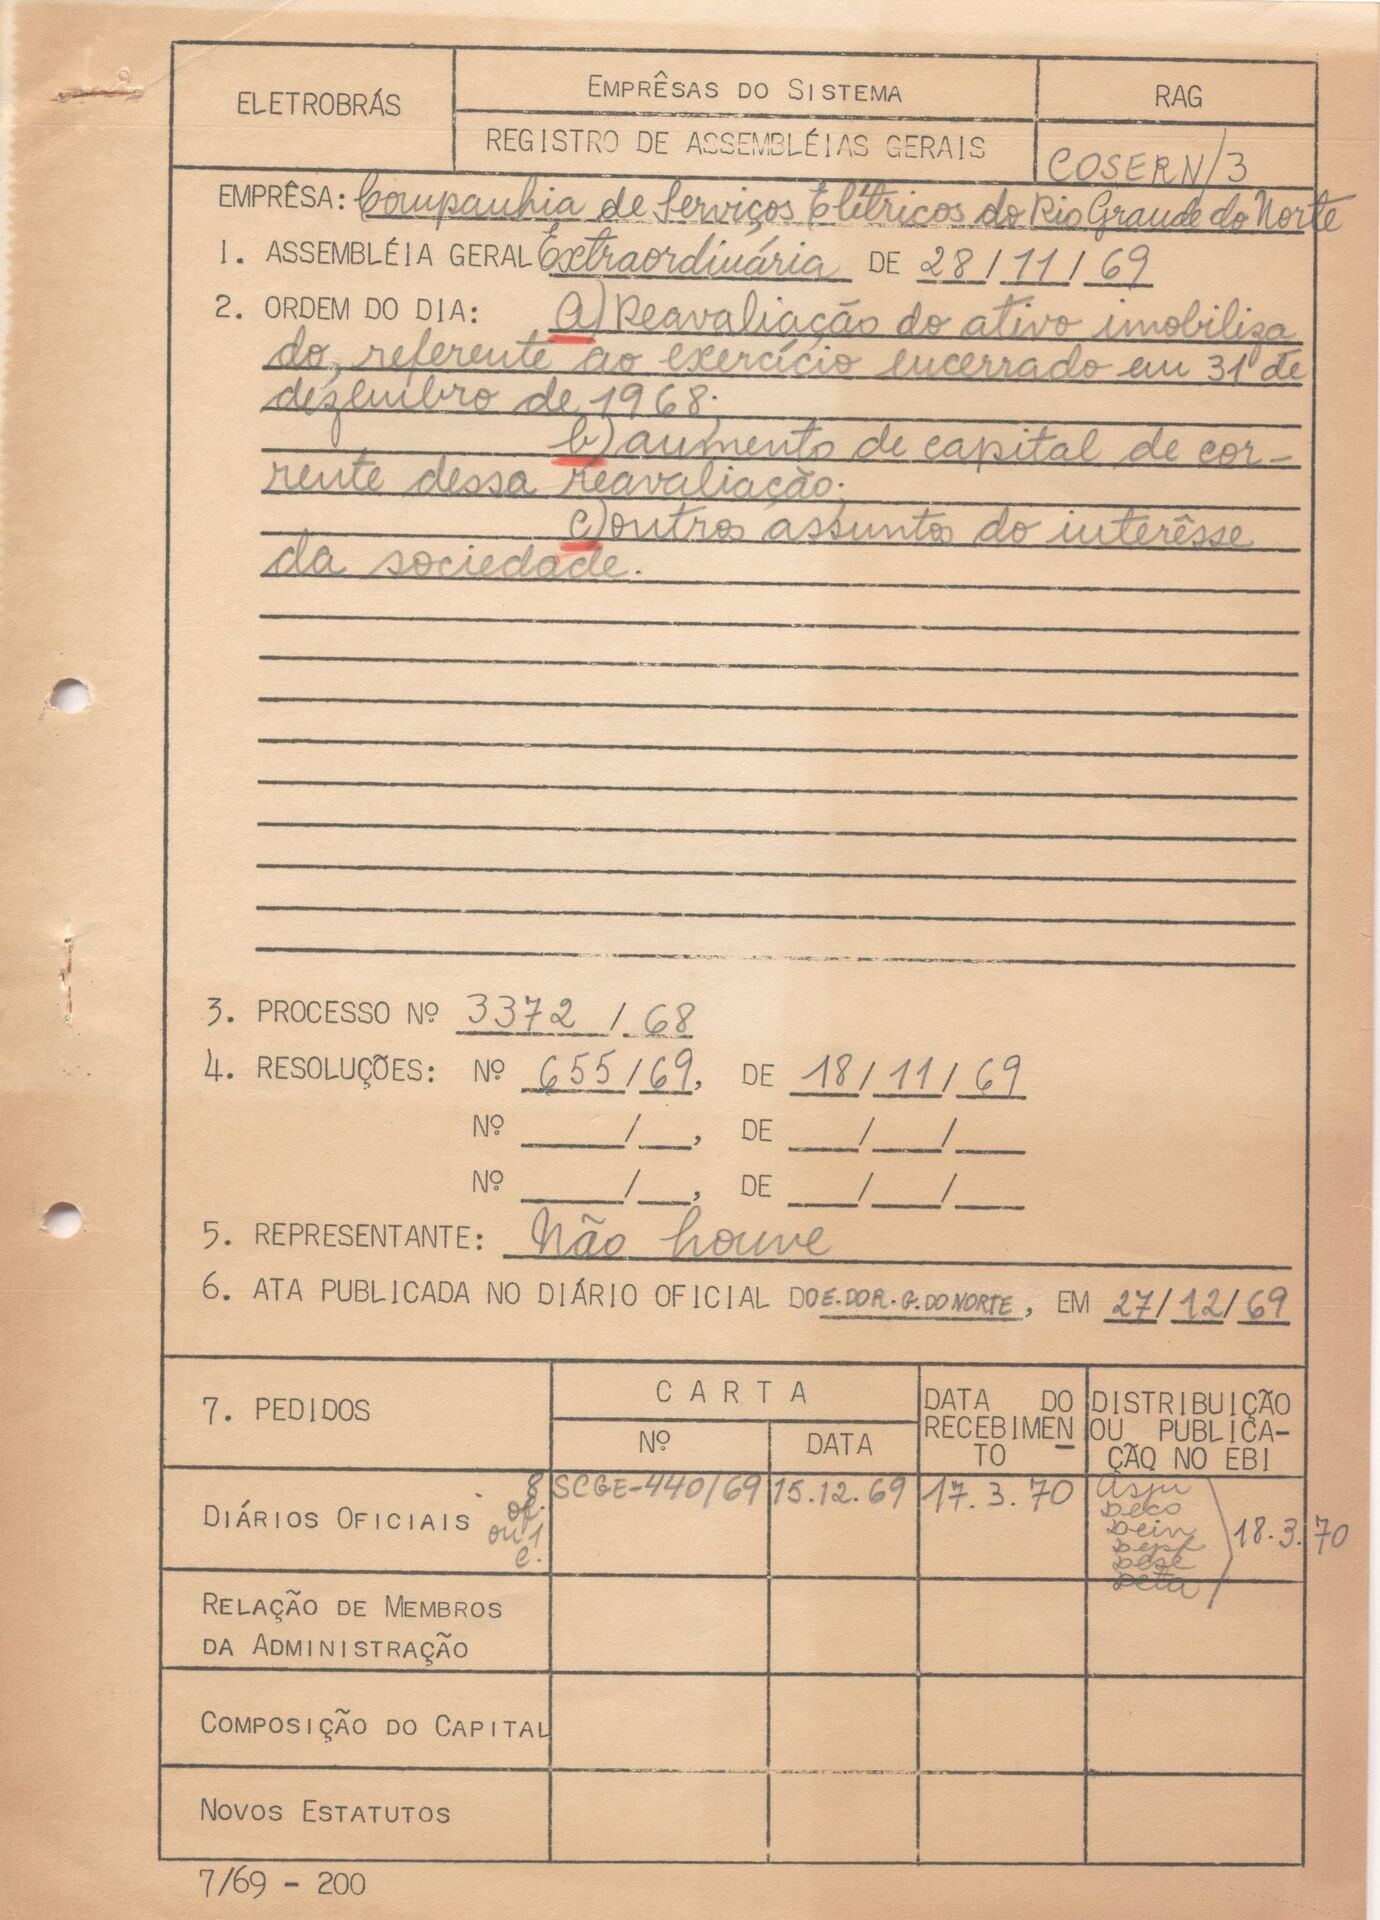 ELETROBRÁS
EMPRÊSAS DO SISTEMA
REGISTRO DE ASSEMBLÉIAS GERAIS
RAG
COSERN/3
EMPRÊSA: Companhia de Serviços Elétricos do Rio Grande do Norte
1. ASSEMBLÉIA GERAL Extraordinária DE 28/11/69
2. ORDEM DO DIA: a) Reavaliação do ativo imobiliza
do, referente ao exercício encerrado em 31 de
dezembro de 1968;
b) aumento de capital de cor-
rente dessa reavaliação;
c) outros assuntos do interêsse
da sociedade.
3. PROCESSO Nº 3372/68
4. RESOLUÇÕES: Nº 655/69, DE 18/11/69
Nº ____/__, DE ___/___/___
Nº ____/__, DE ___/___/___
5. REPRESENTANTE: Não houve
6. ATA PUBLICADA NO DIÁRIO OFICIAL DO E. DO R. G. DO NORTE, EM 27/12/69
7. PEDIDOS
CARTA
Nº
DATA
DATA DO
RECEBIMEN
TO
DISTRIBUIÇÃO
OU PUBLICA-
ÇÃO NO EBI
DIÁRIOS OFICIAIS
8
of.
ou 1
e.
SCGE-440/69
15.12.69
17.3.70
Asju
Deco
Dein
Dese
Deta
18.3.70
RELAÇÃO DE MEMBROS
DA ADMINISTRAÇÃO
COMPOSIÇÃO DO CAPITAL
NOVOS ESTATUTOS
7/69 - 200